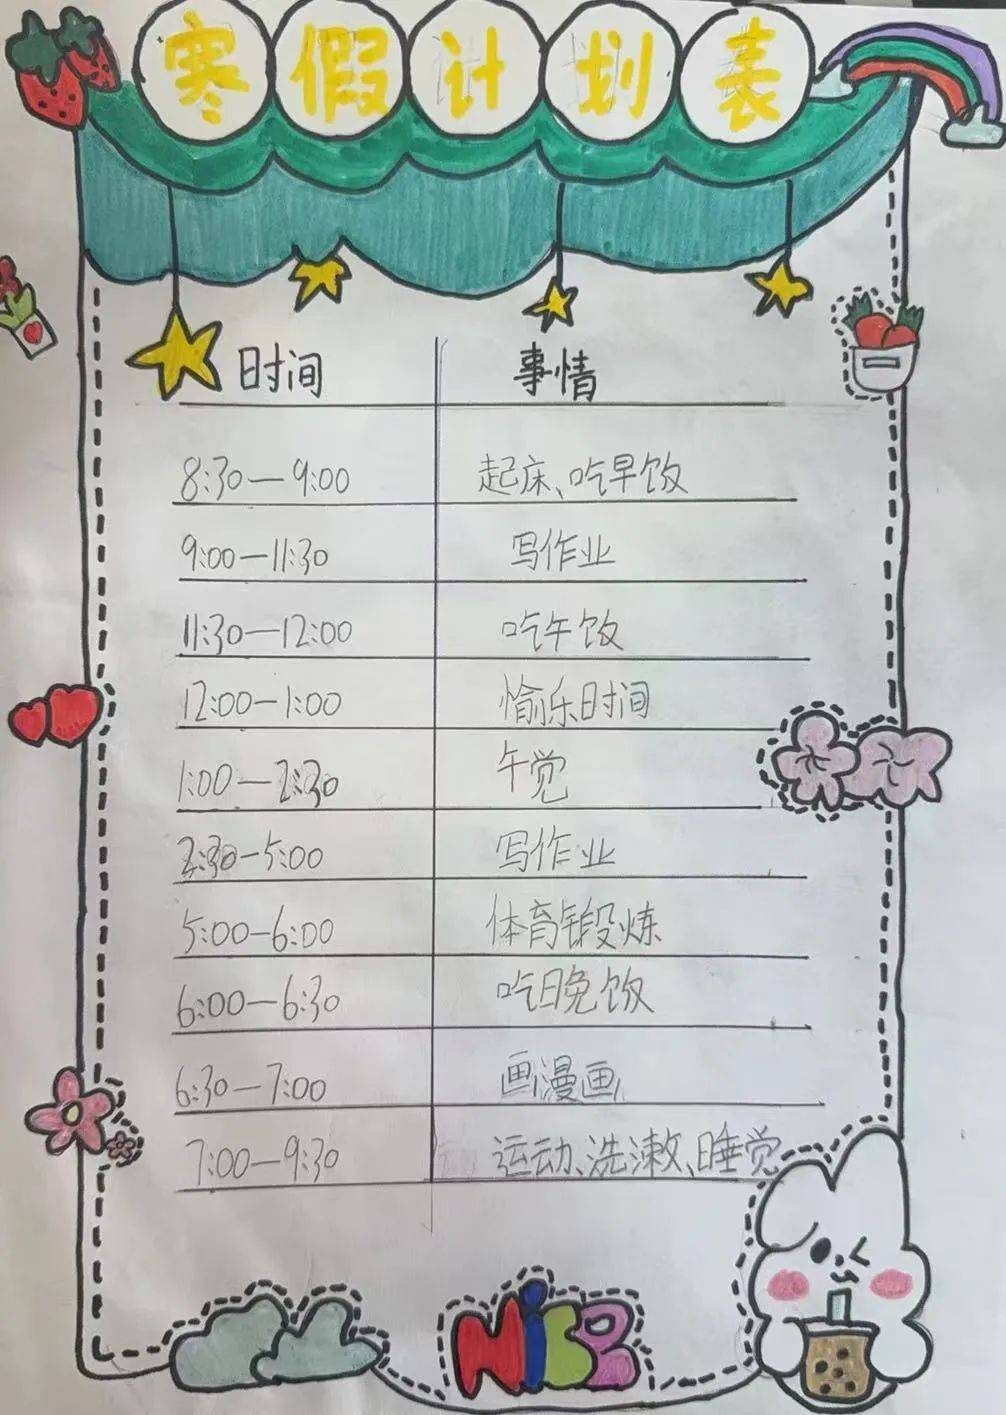 寒假计划表
时间 事情
8:30—9:00 起床、吃早饭
9:00—11:30 写作业
11:30—12:00 吃午饭
12:00—1:00 愉乐时间
1:00—2:30 午觉
2:30—5:00 写作业
5:00—6:00 体育锻炼
6:00—6:30 吃晚饭
6:30—7:00 画漫画
7:00—9:30 运动、洗漱、睡觉
Nice